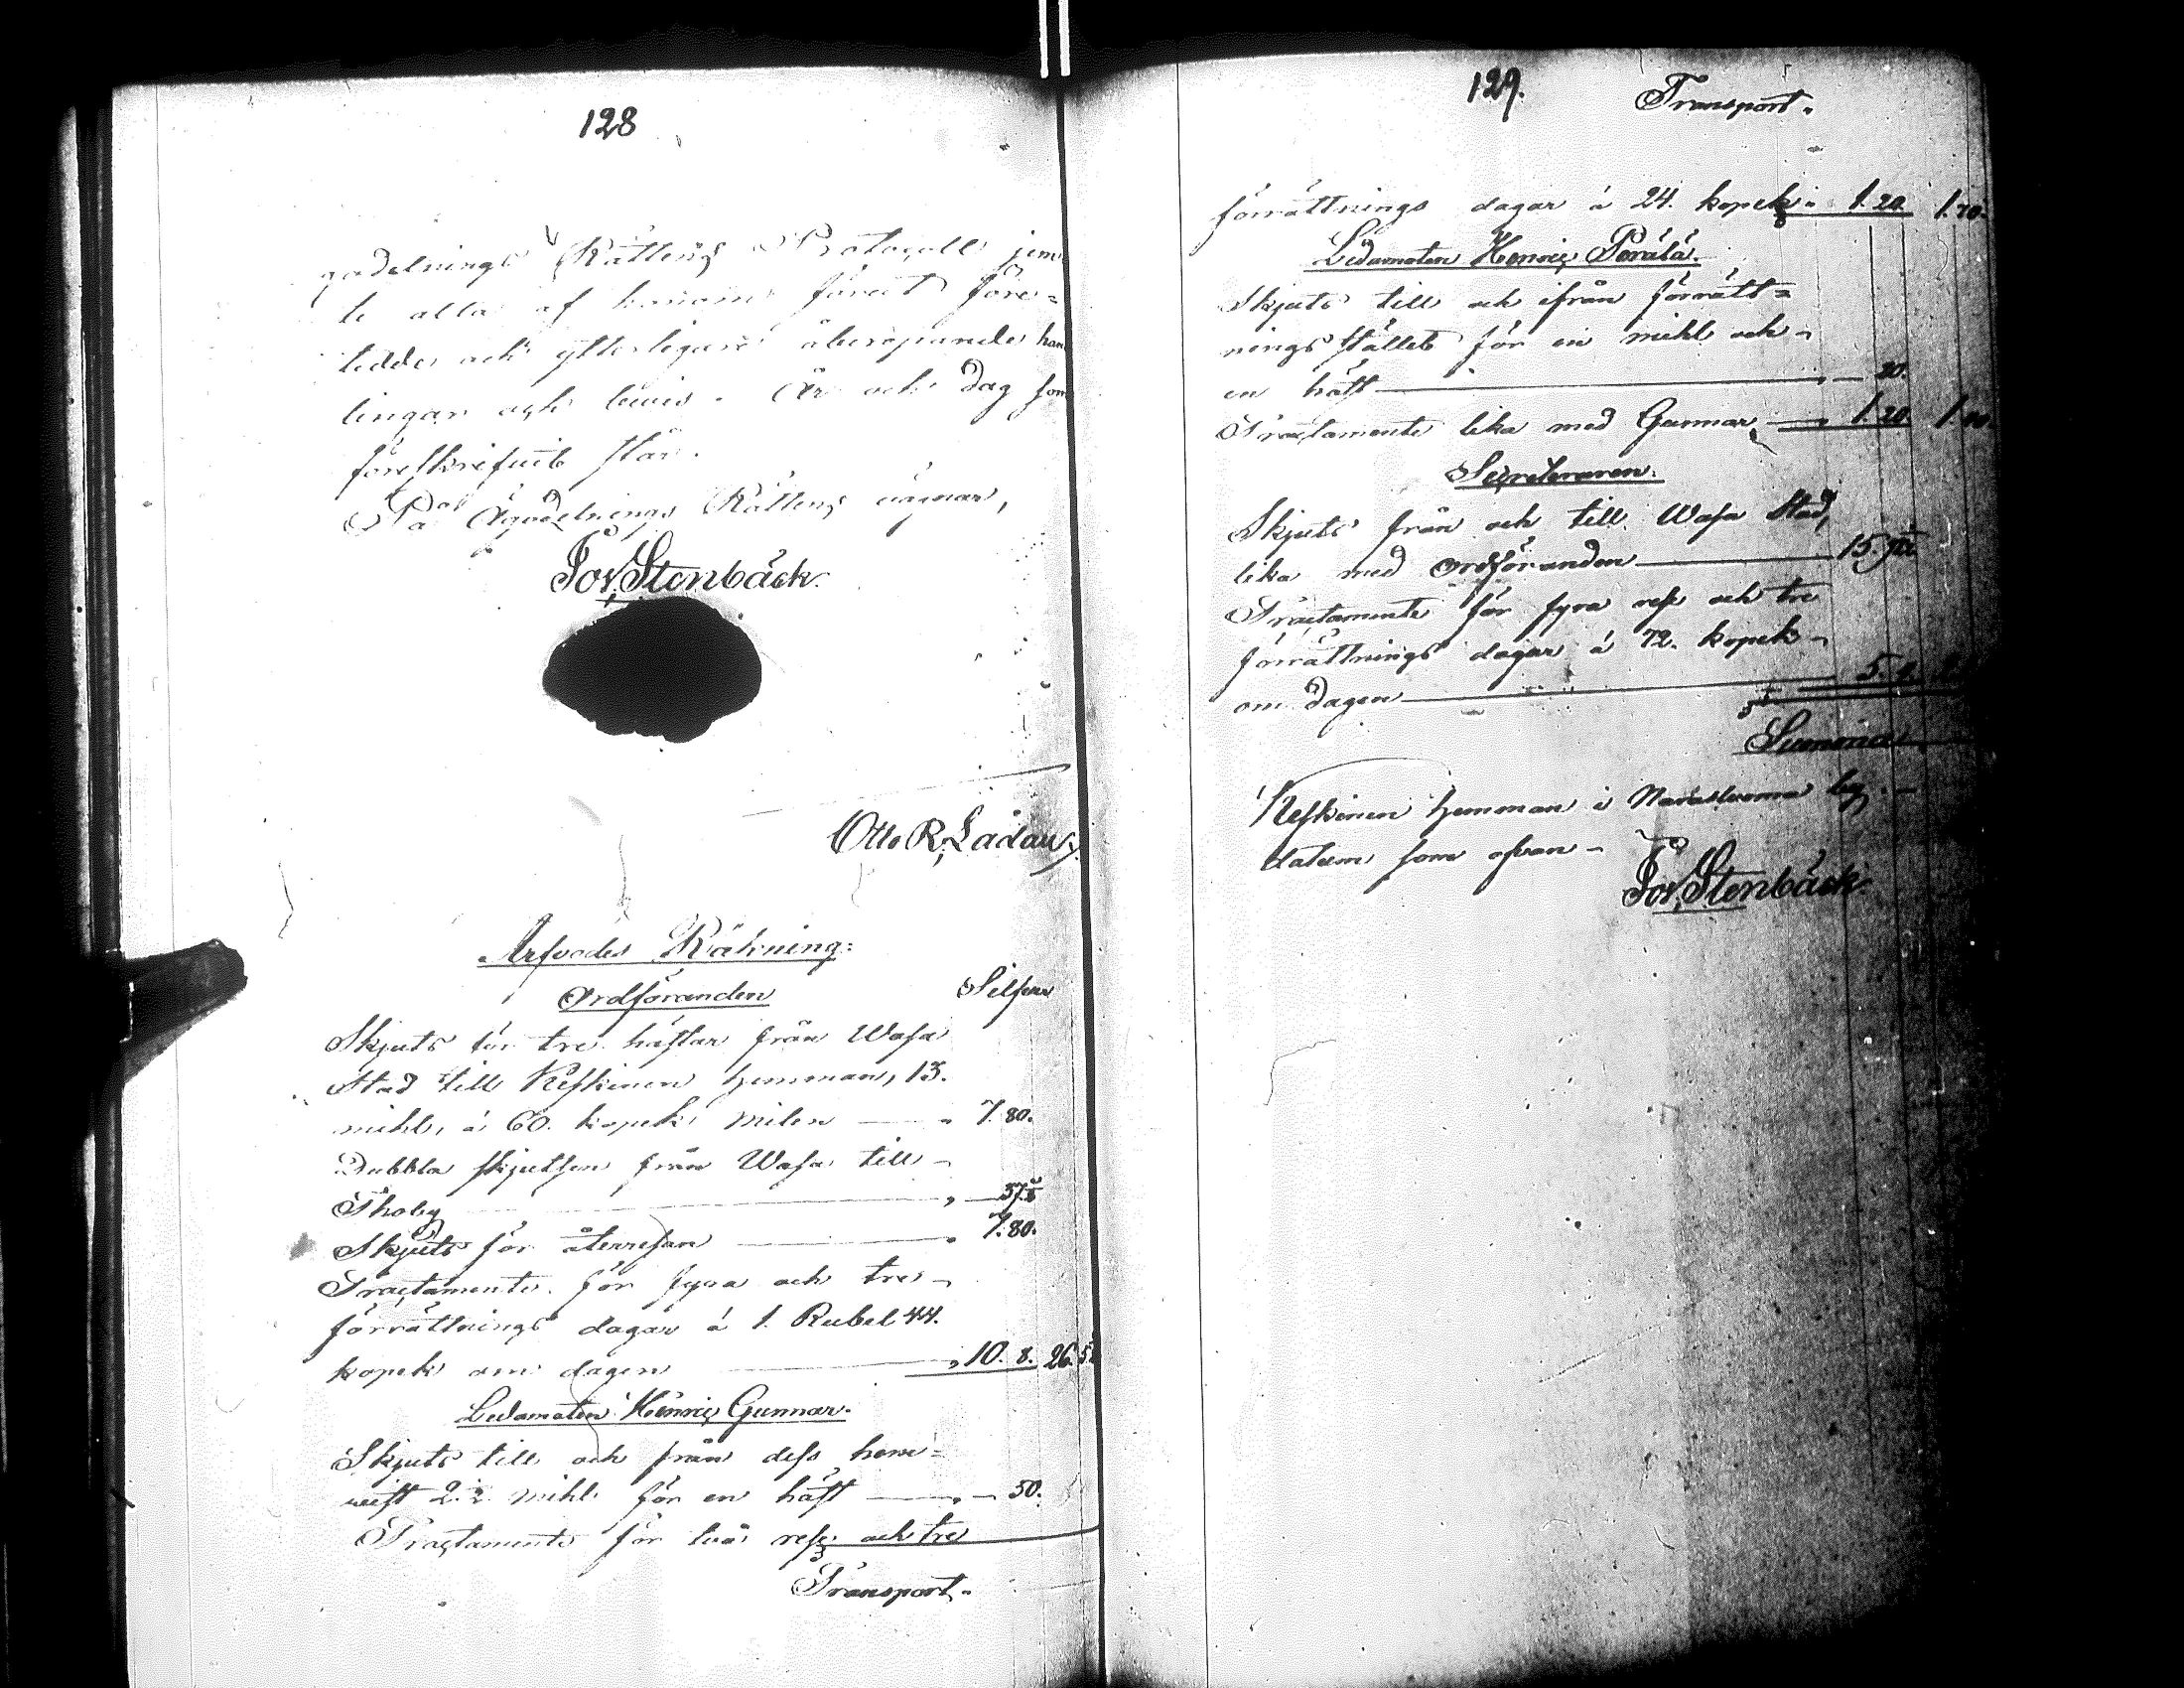 128
godelnings Rättens Protocoll jem
te alla af honom förut före-
tedde och ytterligare åberopande han
lingar och bevis. År och Dag som
föreskrifvit står.
På Ägodelnings Rättens vägnar,
Stenbäck.
Otto R, Ladau
Arfvodes Räkning:
Ordföranden
Silfver
Skjuts för tre hästar från Wasa
Stad till Keskinen hemman, 13.
mihl, á 60. kopek milen — " 7.80.
Dubbla skjutsen från Wasa till
Thoby — " —
Skjuts för återresan — " 7.80.
Tractamente för fyra och tre
förrättnings dagar á 1. Rubel 44.
kopek om dagen — " 10. 8. 26.
Ledamoten Henric Gunnar.
Skjuts till och från dess hem-
vist 2.½ mihl för en häst — " — 50.
Tractamente för två rese och tre
Transport.
129.
Transport.
förrättnings dagar á 24. kopek. 1.20. 1.70.
Ledamoten Henric Porälä.
Skjuts till och ifrån förrätt-
nings stället för en mihl och
en häst — " — 30.
Tractamente lika med Gunnar — " 1.20.
Secreteraren.
Skjuts från och till Wasa Stad,
lika med Ordföranden — 15.
Tractamente för fyra rese och tre
förrättnings dagar á 72. kopek
om Dagen — 5.
Summa
Keskinen hemman i by
datum som ofvan
Stenbäck.